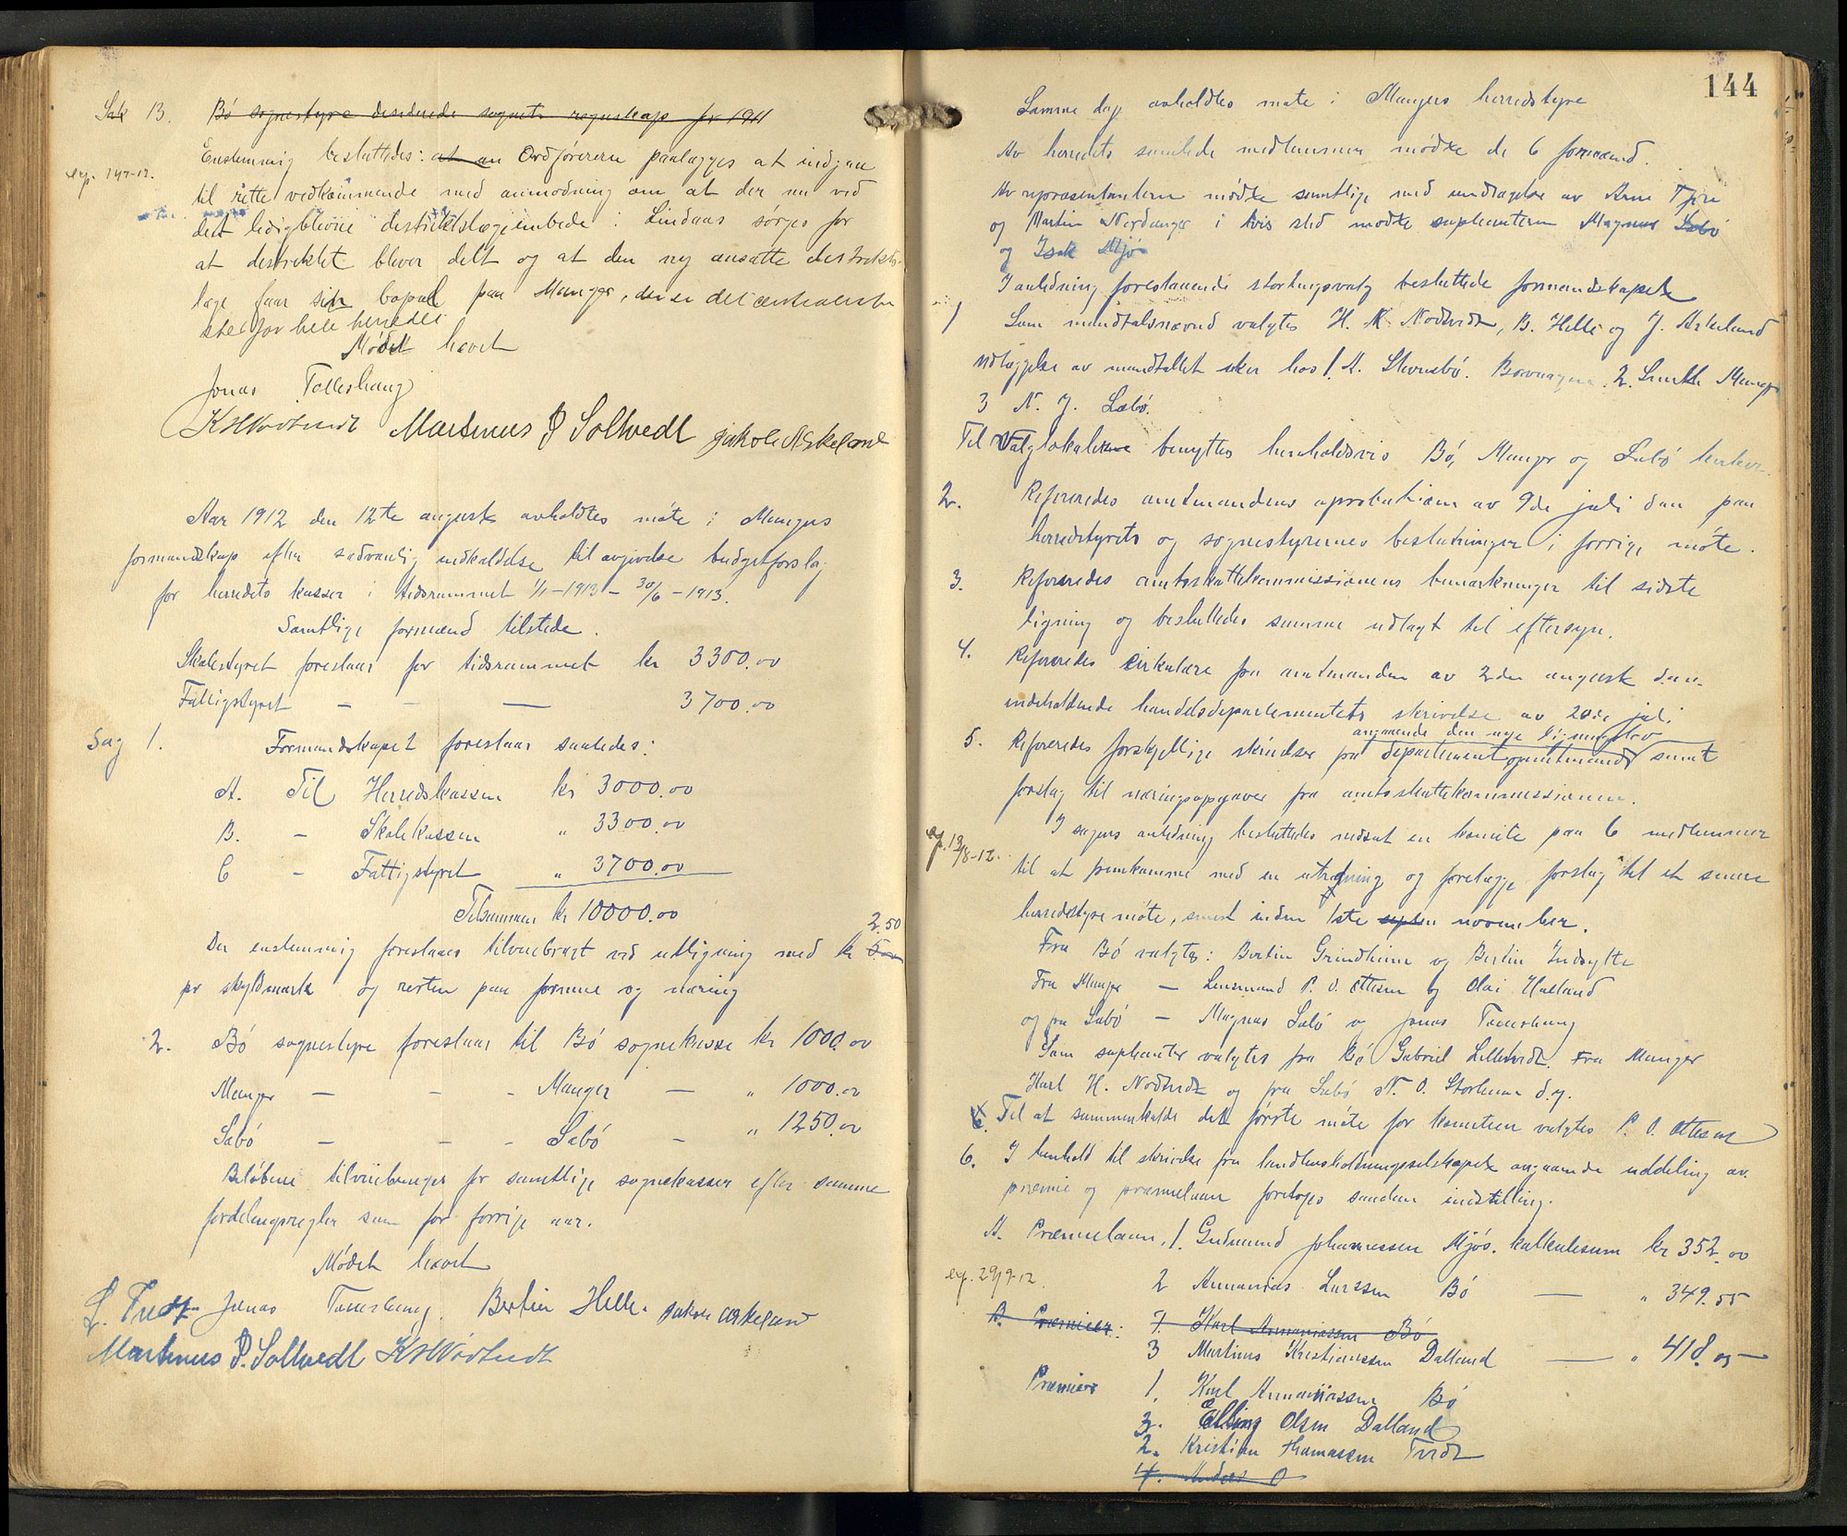 Sak 13. Bö sognestyre desiderede sognets regnskap for 1911
Enstemmig besluttedes: at an Ordföreren paalægges at indgaa
exp. 14/9-12.
til rette vedkommende med anmodning om at der nu ved
det ledigblevne destriktslægeembede i Lindaas sörges for
at destriktet blever delt og at den ny ansatte destrikts-
læge faar sin bopæl paa Manger, der er det centraleste
sted for hele herredet
Mödet hævet
Jonas Toleshaug
K H Nordtvedt Martinus P Soltvedt Jakob Askeland
Aar 1912 den 12te august avholdtes möte i Mangers
formandskap efter sedvanlig indkaldelse til avgivelse budgetforslag
for herredets kasser i tidsrummet 1/1-1913 - 30/6-1913.
Samtlige formænd tilstede.
Skolestyret foreslaar for tidsrummet kr 3300.00
Fattigstyret — - — 3700.00
Sag 1. Formandskapet foreslaar saaledes:
A. Til Herredskassen kr 3000.00
B. - Skolekassen " 3300.00
C - Fattigstyret " 3700.00
Tilsammen kr 10000.00
2.50
Der enstemmig foreslaaes tilveiebragt ved utligning med kr 5.00
pr skyldmark og resten paa formue og næring
2. Bö sognestyre foreslaar til Bö sognekasse kr 1000.00
Manger — - - Manger — " 1000.00
Sæbö — - - Sæbö - " 1250.00
Belöbene tilveiebringes for samtlige sognekasser efter samme
fordelingsregler som for forrige aar.
Mödet hævet
Jonas Toleshaug Bertin Helle. Jakob Askeland
Martinus P. Soltvedt K H Nordtvedt
144
Samme dag avholdtes möte i Mangers herredstyre
Av herredets samtlede medlemmer mödte de 6 formænd.
Av repræsentanterne mödte samtlige med undtagelse av Arne Fjære
og Martin Nordanger i hvis sted mödte suplanterne Magnus Sæbö
og Isak Mjös
I anledning forestaaende stortingsvalg besluttede formandskapet
1) Som mandtalsnævnd valgtes H. K. Nodtvedt, B. Helle og J. Askeland
Utlæggelse av mandtallet sker hos 1. A. Skurnebö. Bövaagen. 2. Smith Manger
3 N. J. Sæbö.
Til Valglokalerne benyttes henholdsvis Bö, Manger og Sæbö kirker.
2. Refereredes amtmandens aprobation av 9de juli d.a. paa
herredstyrets og sognestyrernes beslutninger i forrige möte.
3. Refereredes amtsskattekommissionens bemærkninger til sidste
ligning og besluttedes samme utlagt til eftersyn.
4. Refereredes Cirkulære fra amtmanden av 2den august d.a.
indeholdende handelsdepartementets skrivelse av 20de juli
angaaende den nye ligningslov
5. Refereredes forskjellige skrivelser fra departement og amtmand samt
forslag til næringsopgaver fra amtsskattekommissionen.
I sagens anledning besluttedes nedsat en komite paa 6 medlemmer
exp. 13/8-12.
til at fremkomme med en utredning og forelægge forslag til et senere
herredstyremöte, senest inden 1ste septem november.
Fra Bö valgtes: Bertin Grindheim og Bertin Indsylte
Fra Manger — Lensmand P. O. Ottesen og Olai Halland
og fra Sæbö — Magnus Sæbö og Jonas Toleshaug
Som suplanter valgtes fra Bö Gabriel Lilletvedt. Fra Manger
Karl H. Nodtvedt og fra Sæbö N. O. Storheim d.y.
Til at sammenkalde det förste möte for komiteen valgtes P. O. Ottesen
6. I henhold til skrivelse fra landhusholdningsselskapet angaaende uddeling av
premie og præmielaan foretoges saadan indstilling.
A. Præmielaan, 1. Gudmund Johannessen Mjös. kalkulesum kr 352.00
exp. 29/9-12. 2 Annanias Larssen Bö — " 349.55
B. Præmier: 1. Karl Annaniassen Bö
3 Martinus Kristianssen Dalland — " 418.05
Præmier 1. Karl Annaniassen Bö
3. Elling Olsen Dalland
2. Kristian Thomassen Tvedt
4. Anders O